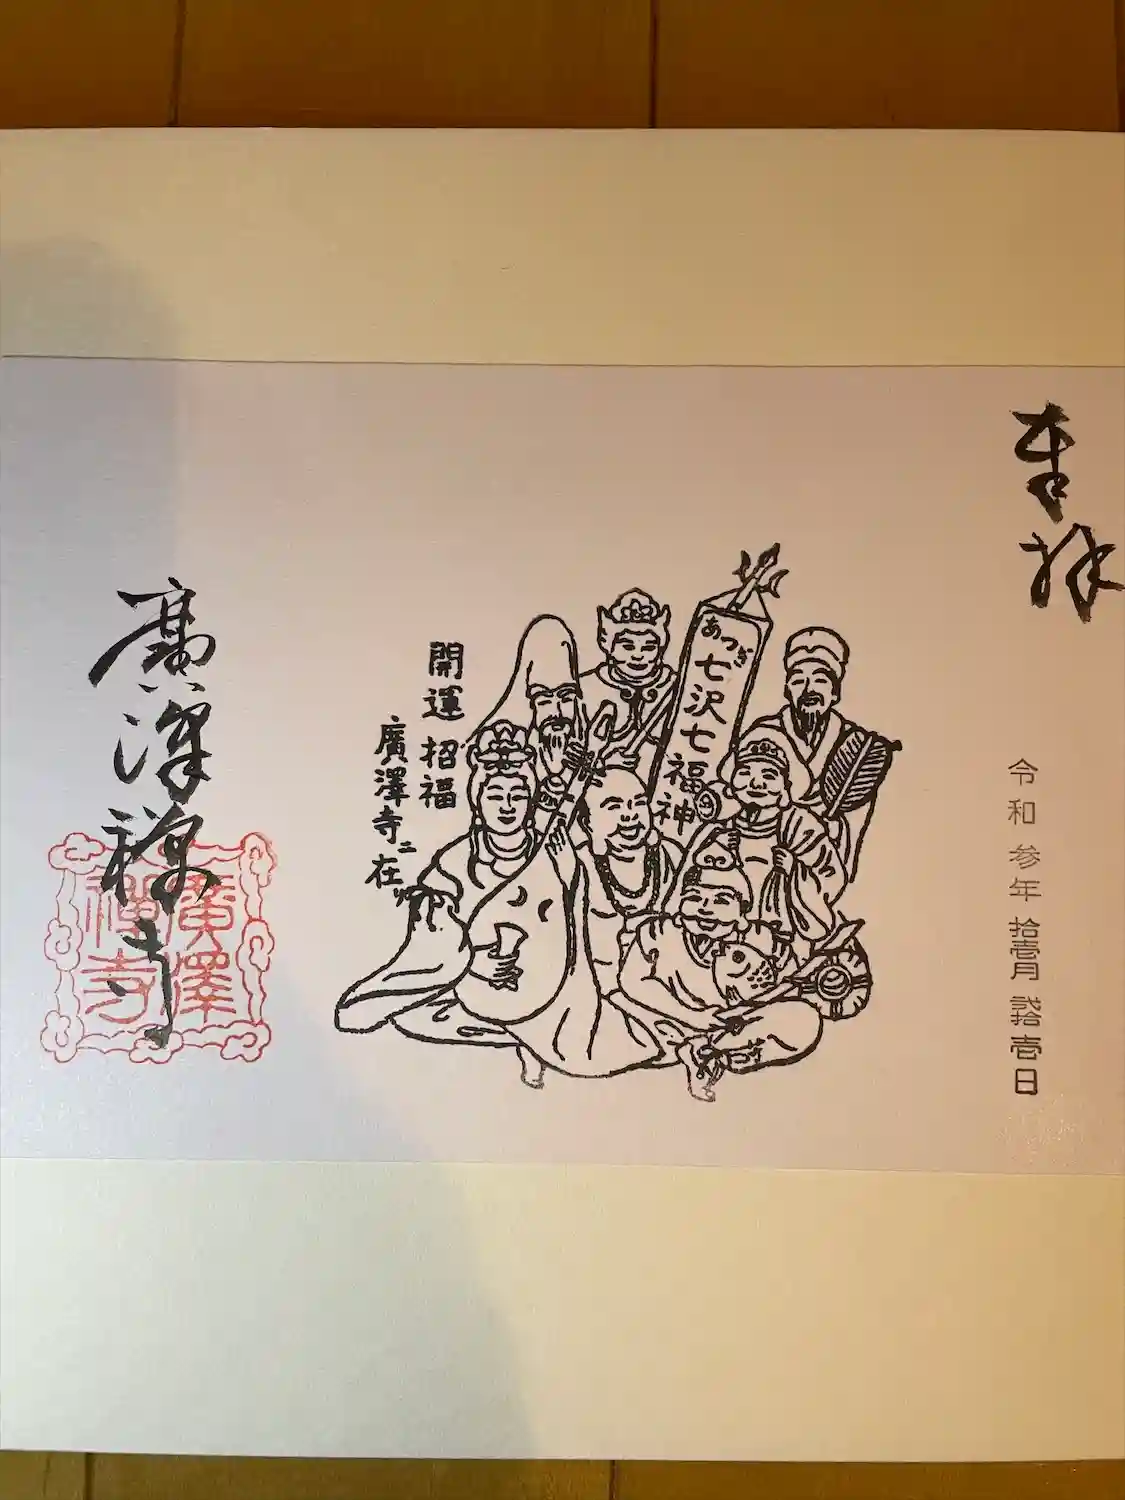 奉拝
令和参年拾壱月弐拾壱日
あつぎ七沢七福神
開運招福
廣澤寺ニ在リ
廣澤禅寺
廣澤
禪寺